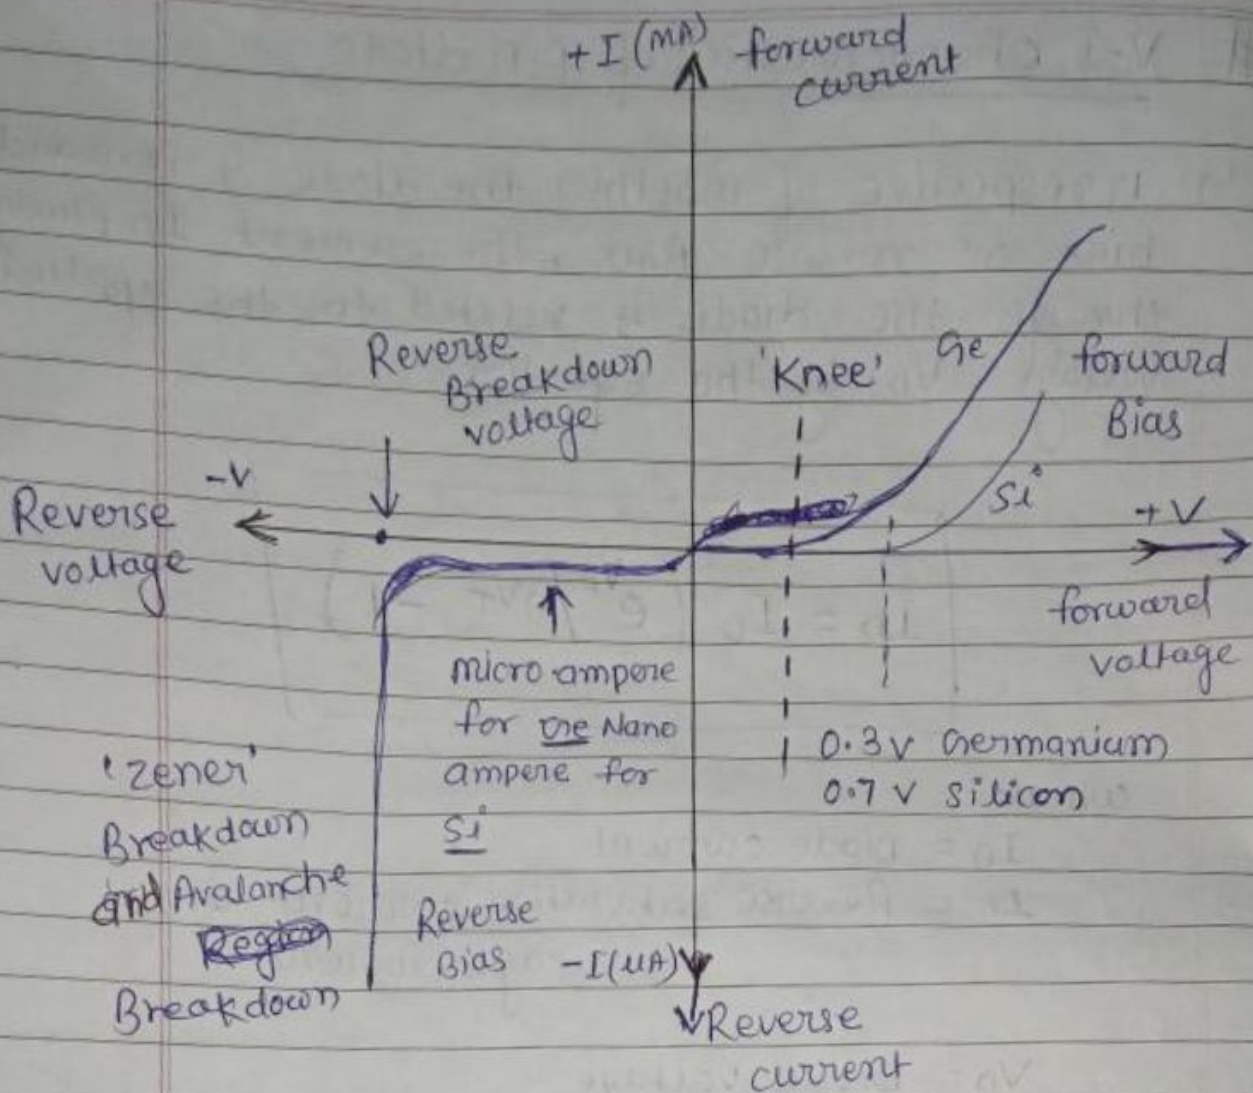 +I (MA)
forward
current
Reverse
Breakdown
voltage
'Knee'
Ge
forward
Bias
Si
-V
+V
Reverse
voltage
forward
voltage
micro ampere
for Ge Nano
ampere for
Si
0.3V Germanium
0.7 V Silicon
'Zener'
Breakdown
and Avalanche
Region
Breakdown
Reverse
Bias
-I(μA)
Reverse
current